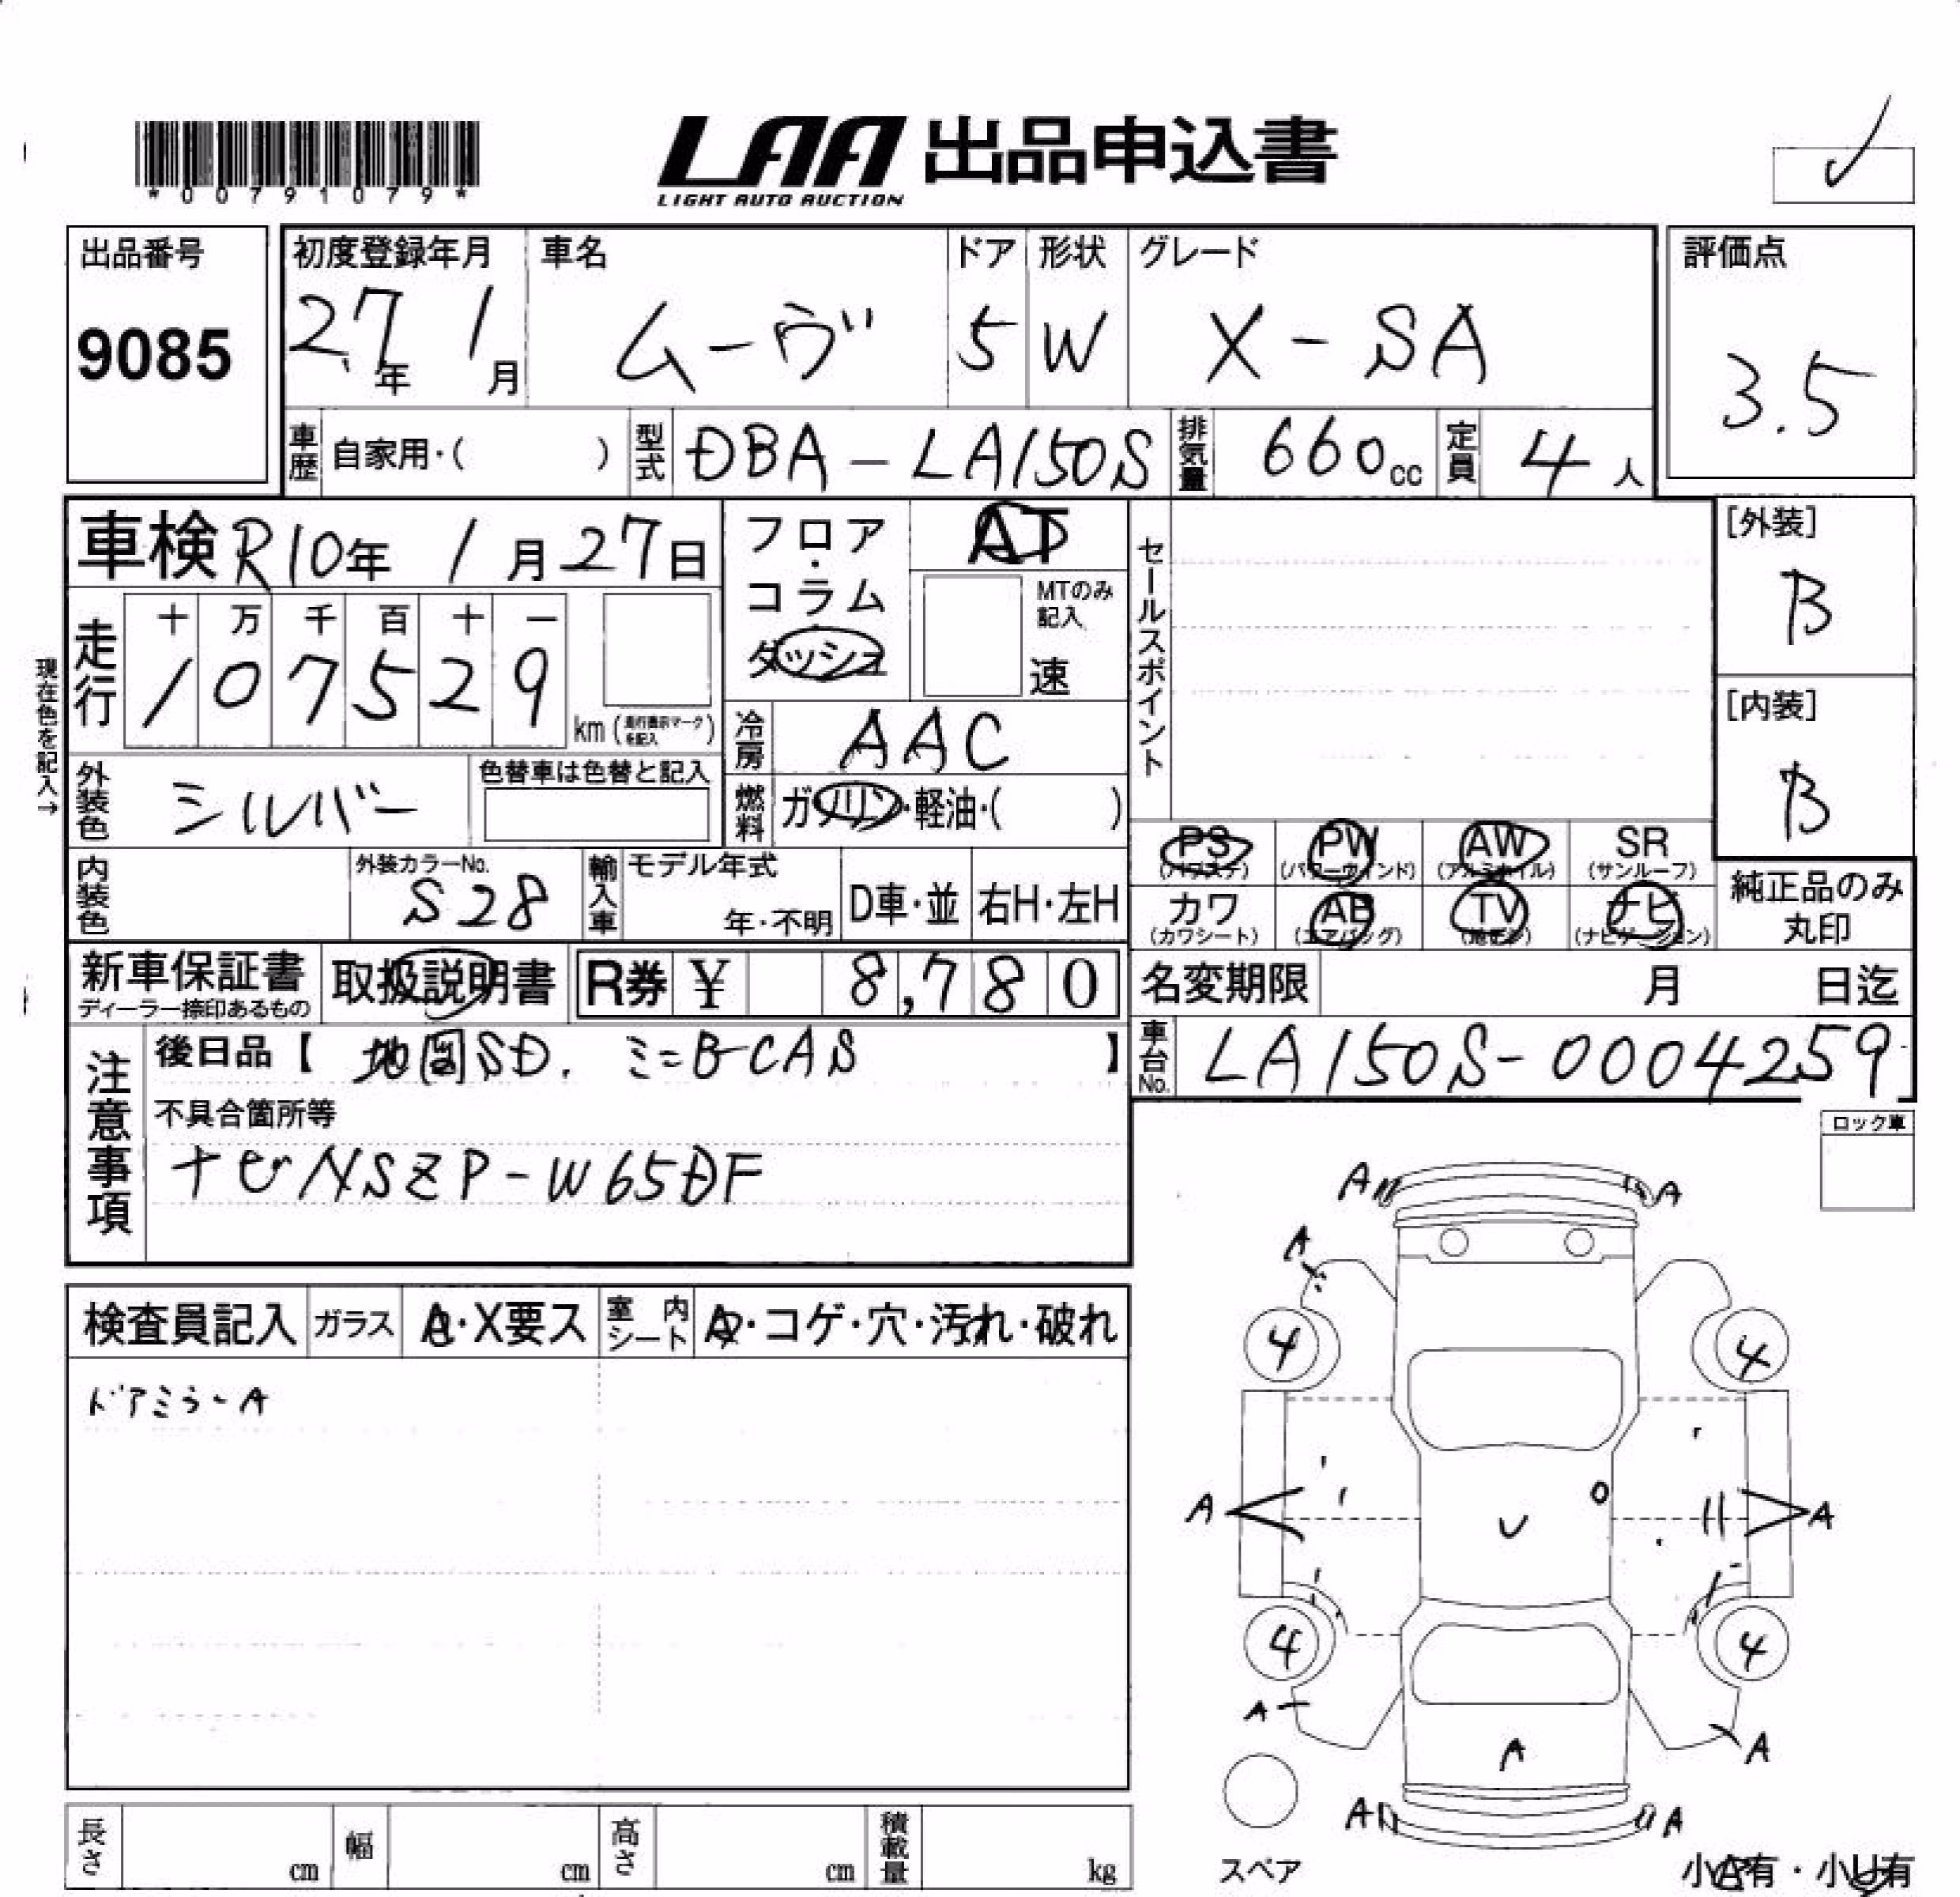 *00791079*
LAA 出品申込書
LIGHT AUTO AUCTION
出品番号
9085
初度登録年月
27年 1月
車名
ムーヴ
ドア
5
形状
W
グレード
X-SA
評価点
3.5
車歴 自家用・( )
型式 DBA-LA150S
排気量 660cc
定員 4人
車検 R10年 1月27日
フロア・コラム・ダッシュ
AT
MTのみ記入
速
セールスポイント
[外装]
B
[内装]
B
現在色を記入→
走行
十 万 千 百 十 一
1 0 7 5 2 9
km (走行表示マークを記入)
冷房 AAC
外装色 シルバー
色替車は色替と記入
燃料 ガソリン・軽油・( )
内装色
外装カラーNo.
S28
輸入車
モデル年式
年・不明
D車・並
右H・左H
PS (パワステ)
PW (パワーウィンド)
AW (アルミホイル)
SR (サンルーフ)
カワ (カワシート)
AB (エアバッグ)
TV (地デジ)
ナビ (ナビゲーション)
純正品のみ丸印
新車保証書
ディーラー捺印あるもの
取扱説明書
R券 ¥ 8,780
名変期限 月 日迄
注意事項
後日品【 地図SD. ミニB-CAS 】
車台No. LA150S-0004259
不具合箇所等
ナビNSZP-W65DF
ロック車
検査員記入
ガラス A・X要ス
室内シート A・コゲ・穴・汚れ・破れ
ドアミラーA
A A
A
4 4
A U A
4 4
A
A A
A A
スペア
小A有・小U有
長さ cm
幅 cm
高さ cm
積載量 kg